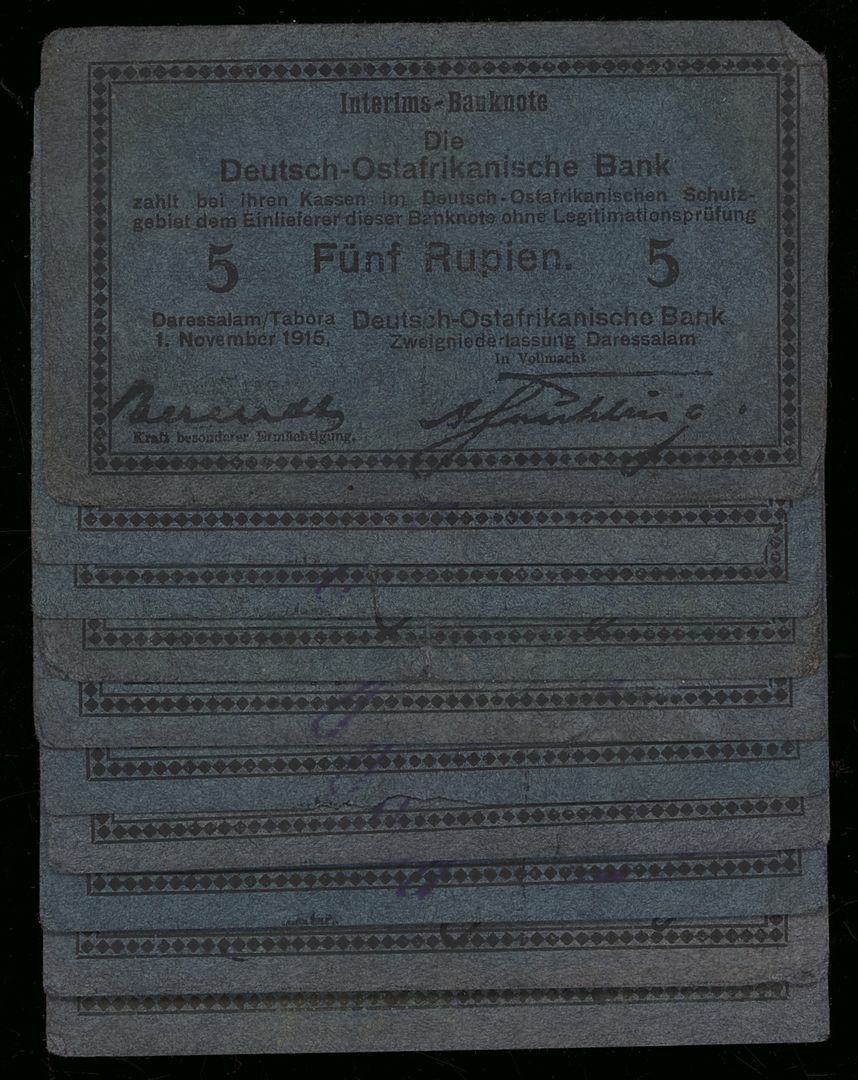 Interims-Banknote
Die
Deutsch-Ostafrikanische Bank
zahlt bei ihren Kassen im Deutsch-Ostafrikanischen Schutz-
gebiet dem Einlieferer dieser Banknote ohne Legitimationsprüfung
5 Fünf Rupien. 5
Daressalam/Tabora Deutsch-Ostafrikanische Bank
1. November 1915. Zweigniederlassung Daressalam
In Vollmacht
Kraft besonderer Ermächtigung.